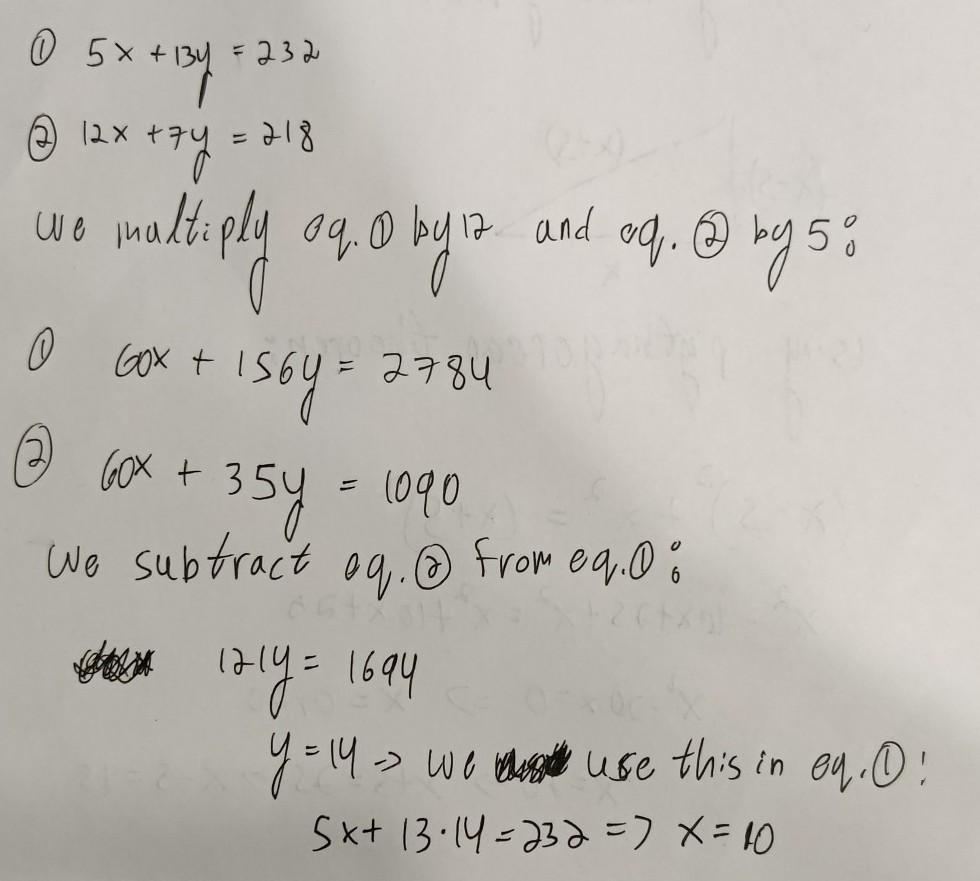 ① 5x + 13y = 232
② 12x + 7y = 218
we multiply eq. ① by 12 and eq. ② by 5:
① 60x + 156y = 2784
② 60x + 35y = 1090
We subtract eq. ② from eq. ①:
121y = 1694
y = 14 => we use this in eq. ①:
5x + 13·14 = 232 => x = 10